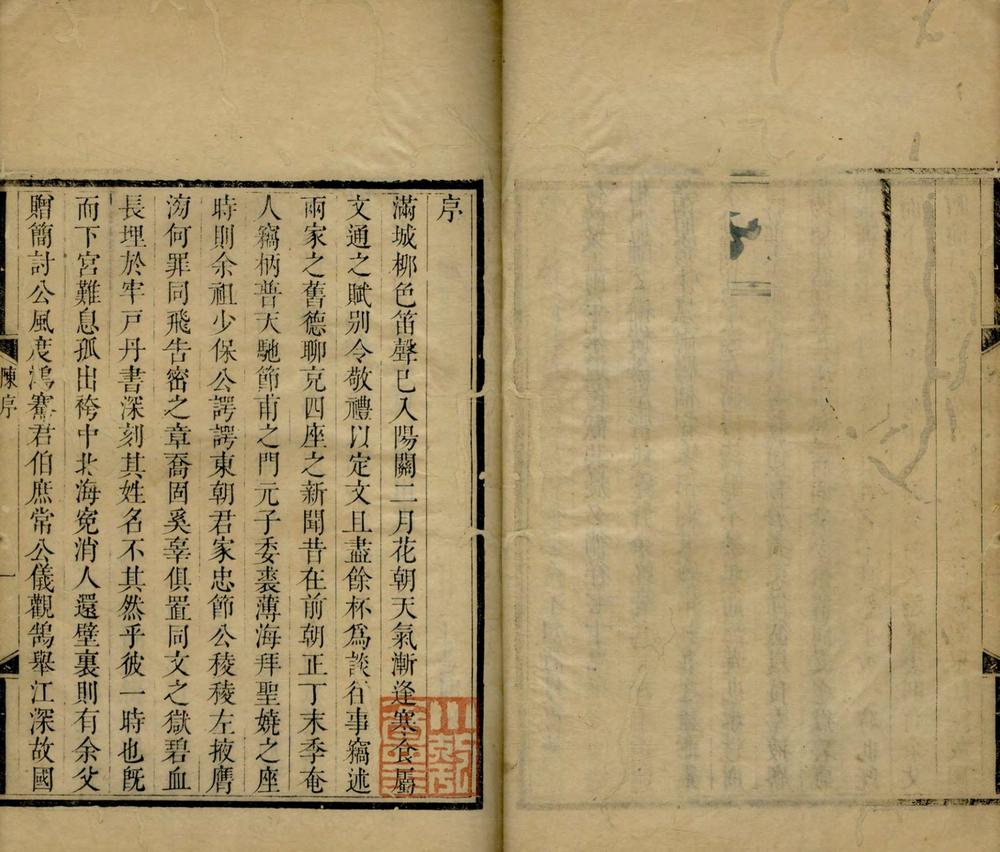 序
滿城柳色笛聲已入陽關二月花朝天氣漸逢寒食屬
文通之賦別令敬禮以定文且盡餘杯爲談往事竊述
兩家之舊德聊充四座之新聞昔在前朝正丁末季奄
人竊柄普天馳節甫之門元子委裘薄海拜聖嬈之座
時則余祖少保公諤諤東朝君家忠節公稜稜左掖膺
滂何罪同飛告密之章喬固奚辜俱置同文之獄碧血
長埋於牢戶丹書深刻其姓名不其然乎彼一時也旣
而下宮難息孤出袴中北海寃消人還壁裏則有余父
贈簡討公風度鴻騫君伯庶常公儀觀鵠舉江深故國
陳序
一